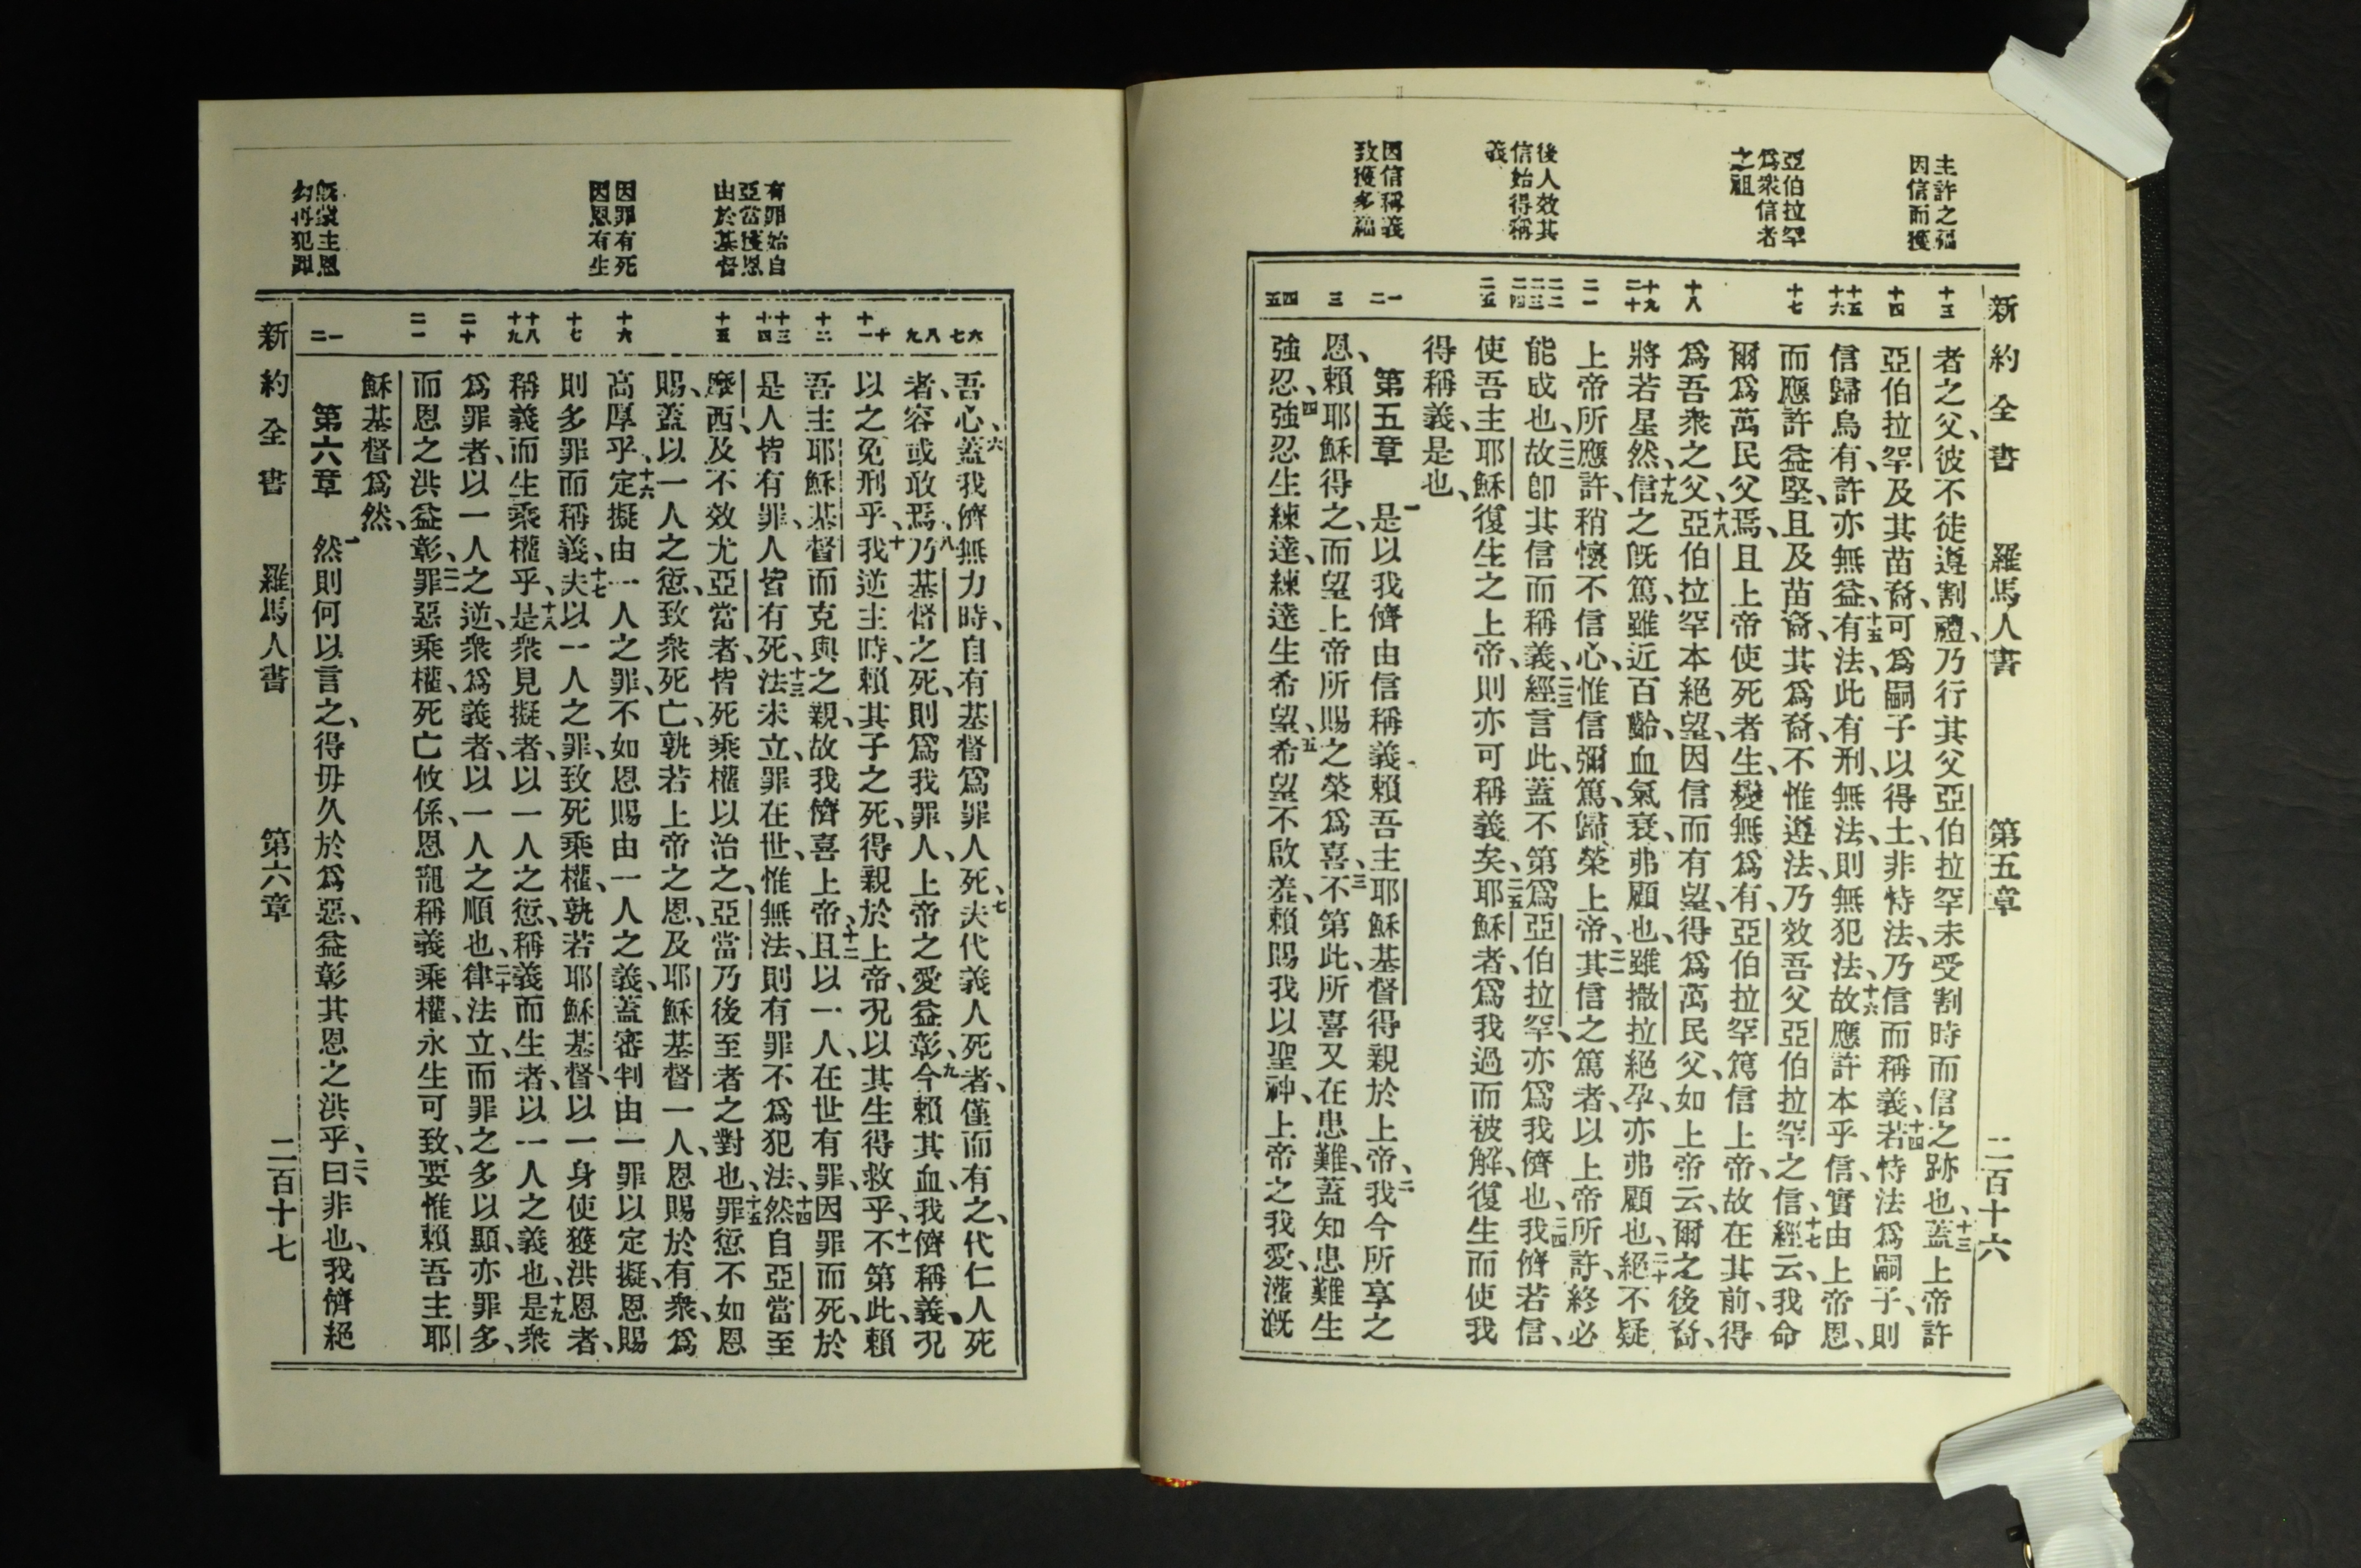 新約全書 羅馬人書 第五章 二百十六
主許之福
因信而獲
亞伯拉罕
爲衆信者
之祖
後人效其
信始得稱
義
因信稱義
致獲多福
十三
十四
十五
十六
十七
十八
十九
二十
二一
二二
二三
二四
二五
一
二
三
四
五
者之父、彼不徒遵割禮、乃行其父亞伯拉罕未受割時而信之跡也、十三蓋上帝許
亞伯拉罕及其苗裔、可爲嗣子以得土、非恃法、乃信而稱義、十四若恃法爲嗣子、則
信歸烏有、許亦無益、十五有法、此有刑、無法、則無犯法、十六故應許本乎信、實由上帝恩、
而應許益堅、且及苗裔、其爲裔、不惟遵法、乃效吾父亞伯拉罕之信、十七經云、我命
爾爲萬民父焉、且上帝使死者生、變無爲有、亞伯拉罕篤信上帝、故在其前、得
爲吾衆之父、十八亞伯拉罕本絕望、因信而有望、得爲萬民父、如上帝云、爾之後裔、
將若星然、十九信之旣篤、雖近百齡、血氣衰、弗顧也、雖撒拉絕孕、亦弗顧也、二十絕不疑
上帝所應許、稍懷不信心、惟信彌篤、歸榮上帝、二一其信之篤者、以上帝所許、終必
能成也、二二故卽其信而稱義、二三經言此、蓋不第爲亞伯拉罕、亦爲我儕也、二四我儕若信、
使吾主耶穌復生之上帝、則亦可稱義矣、二五耶穌者、爲我過而被解、復生而使我
得稱義、是也、
第五章 一是以我儕由信稱義賴吾主耶穌基督得親於上帝、二我今所享之
恩、賴耶穌得之、而望上帝所賜之榮爲喜、三不第此、所喜又在患難、蓋知患難生
強忍、四強忍生練達、練達生希望、五希望不啟羞、賴賜我以聖神、上帝之我愛、灌溉
有罪始自
亞當獲恩
由於基督
因罪有死
因恩有生
旣蒙主恩
勿再犯罪
六
七
八
九
十
十一
十二
十三
十四
十五
十六
十七
十八
十九
二十
二一
一
二
吾心、六蓋我儕無力時、自有基督爲罪人死、七夫代義人死者、僅而有之、代仁人死
者、容或敢焉、八乃基督之死、則爲我罪人、上帝之愛益彰、九今賴其血、我儕稱義、況
以之免刑乎、十我逆主時、賴其子之死、得親於上帝、況以其生得救乎、十一不第此、賴
吾主耶穌基督而克與之親、故我儕喜上帝、十二且以一人、在世有罪、因罪而死、於
是人皆有罪、人皆有死、十三法未立、罪在世、惟無法、則有罪不爲犯法、十四然自亞當至
摩西、及不效尤亞當者、皆死乘權以治之、亞當乃後至者之對也、十五罪愆不如恩
賜、蓋以一人之愆、致衆死亡、孰若上帝之恩、及耶穌基督一人、恩賜於有衆、爲
高厚乎、十六定擬由一人之罪、不如恩賜由一人之義、蓋審判由一罪以定擬、恩賜
則多罪而稱義、十七夫以一人之罪、致死乘權、孰若耶穌基督、以一身使獲洪恩者、
稱義而生乘權乎、十八是衆見擬者、以一人之愆、稱義而生者、以一人之義也、十九是衆
爲罪者、以一人之逆、衆爲義者、以一人之順也、二十律法立、而罪之多以顯、亦罪多、
而恩之洪益彰、二一罪惡乘權、死亡攸係、恩寵稱義乘權、永生可致、要惟賴吾主耶
穌基督爲然、
第六章 一然則何以言之、得毋久於爲惡、益彰其恩之洪乎、二曰、非也、我儕絕
新約全書 羅馬人書 第六章 二百十七